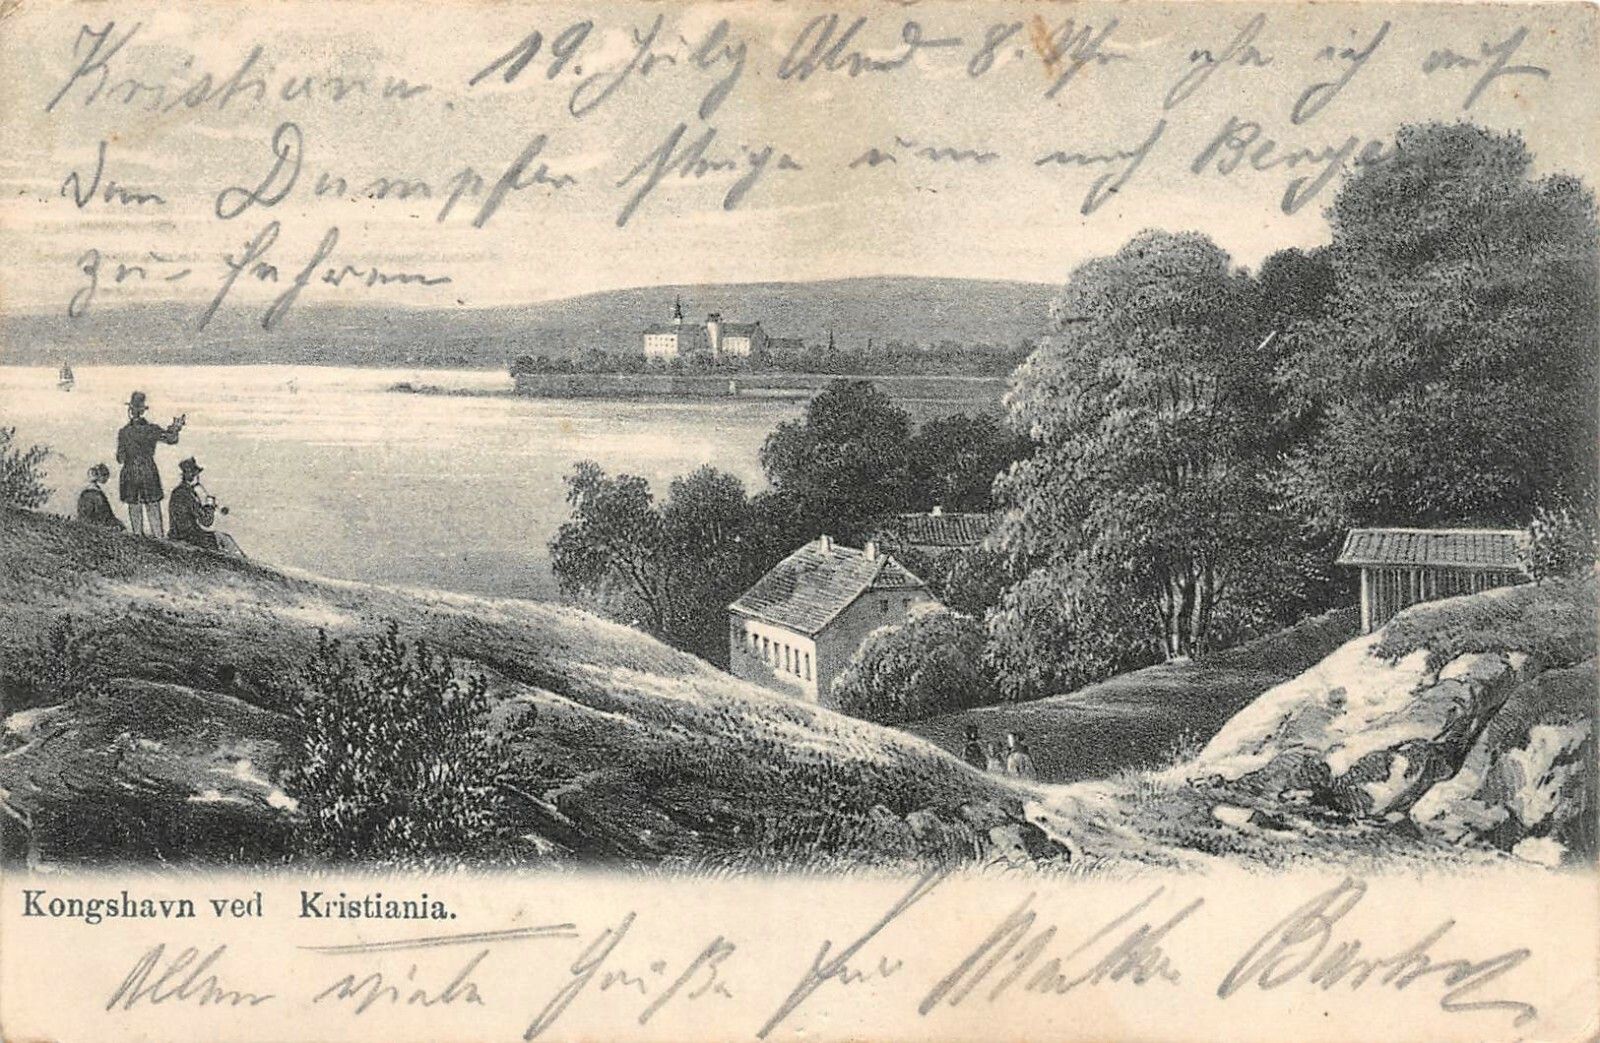 Kristiana, 19. July Abend 8. Uhr ehe ich auf
den Dampfer steige um nach Bergen
zu fahren
Kongshavn ved Kristiania.
Allen viele Grüße